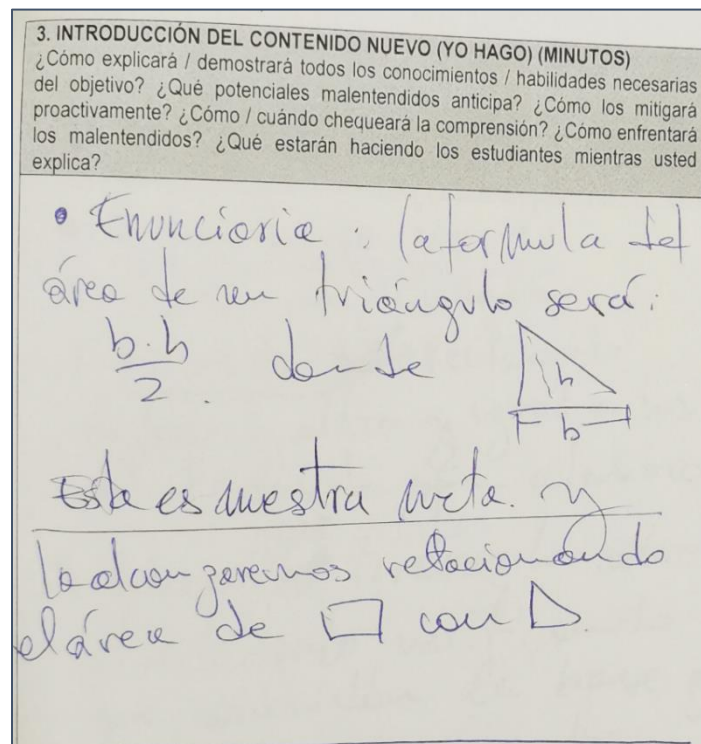 3. INTRODUCCIÓN DEL CONTENIDO NUEVO (YO HAGO) (MINUTOS)
¿Cómo explicará / demostrará todos los conocimientos / habilidades necesarias
del objetivo? ¿Qué potenciales malentendidos anticipa? ¿Cómo los mitigará
proactivamente? ¿Cómo / cuándo chequeará la comprensión? ¿Cómo enfrentará
los malentendidos? ¿Qué estarán haciendo los estudiantes mientras usted
explica?
• Enunciaria : la formula del
área de un triángulo será:
b·h
2. donde h
b
Esta es nuestra meta. y
lo alcanzaremos relacionando
el área de con